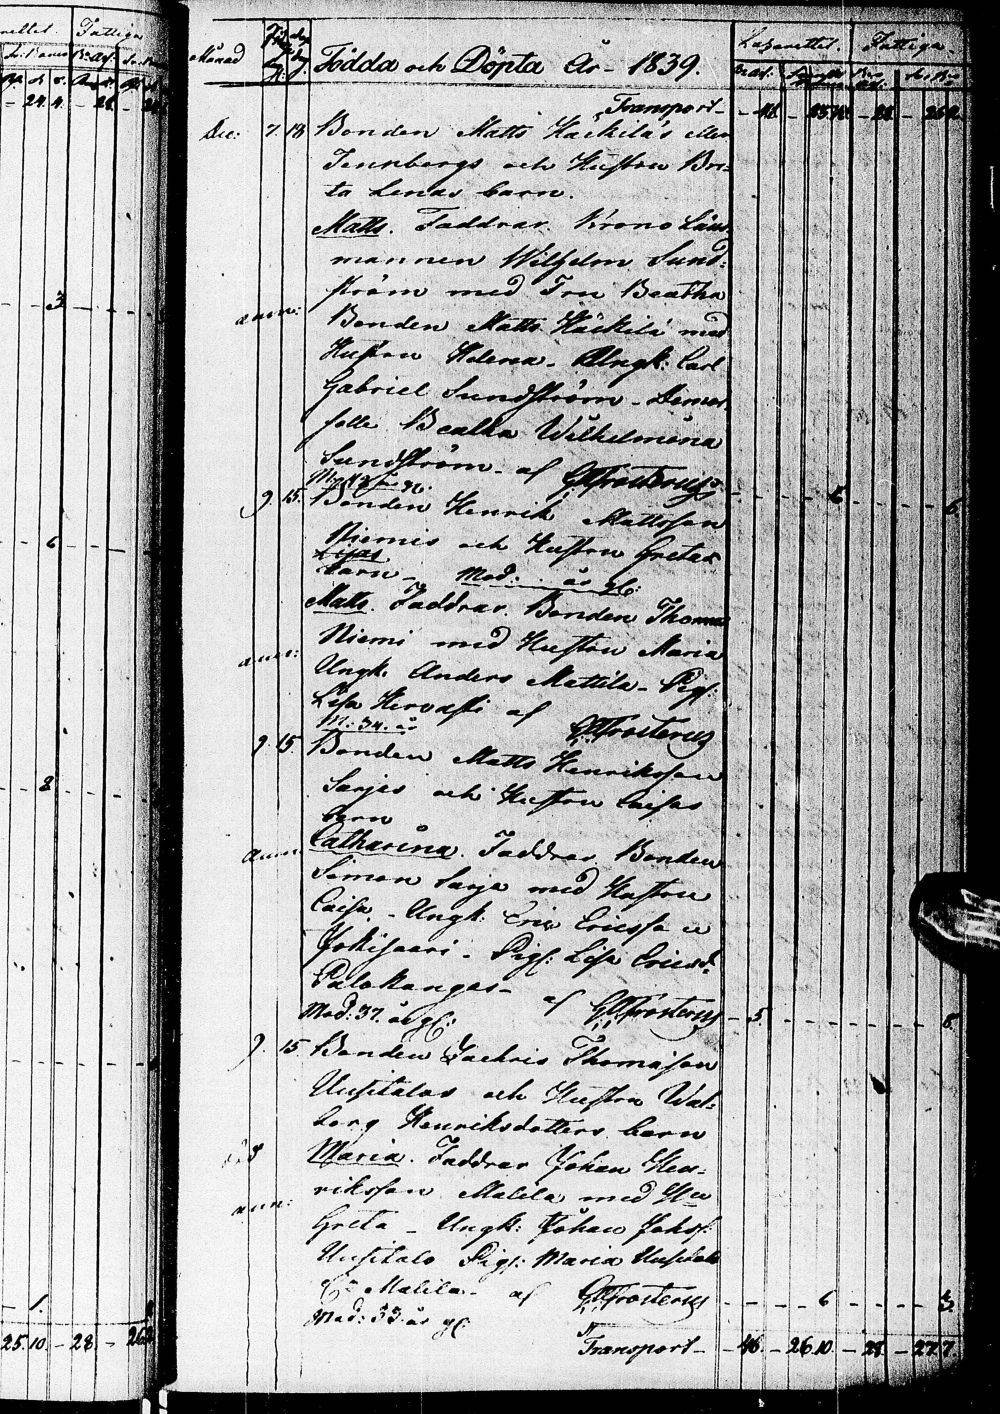 Månad Födda och Döpta År - 1839. Lazarettet. Fattiga.
Transport - 28
Dec: 7. 13 Bonden Matts Häckilä's eller
och Hustru Bri-
ta Lenas barn.
Matts. Faddrar. Krono Läns
mannen Wilhelm Sund-
ström med Fru Beatha
ann: Bonden Matts Häckilä med
Hustru Helena - Ungk: Carl
Gabriel Sundström - Demoi-
selle Beatha Wilhelmina
Sundström - af Frosterus
9. 15. Bonden Henrik Mattsson
Niemis och Hustru Greta
Lisas
barn - Mod: år gl:
Matts. Faddrar. Bonden Thomas
Niemi med Hustru Maria
ann: Ungk. Anders Mattila - Pig:
Lisa Hervasti af Frosterus
M: 34. år
9. 15. Bonden Matts Henriksson
Sarjes och Hustru Caisas
barn
ann: Catharina. Faddrar. Bonden
Simon Sarja med Hustru
Caisa - Ungk: Eric Ericsson
Jokisaari - Pig: Lisa Ericsd:
Palokangas - af Frosterus - 5.
Mod: 37. år gl:
9. 15 Bonden Zachris Thomasson
Uusitalos och Hustru Wal-
borg Henriksdotters barn
Maria. Faddrar Johan Hen-
riksson Malila med Hu
ann: Greta - Ungk: Johan Johs:
Uusitalo Pig: Maria Uusitalo
Malila - af Frosterus - 6
Mod: 33 år gl:
Transport - 46 - 26.10 - 28 - 27.7